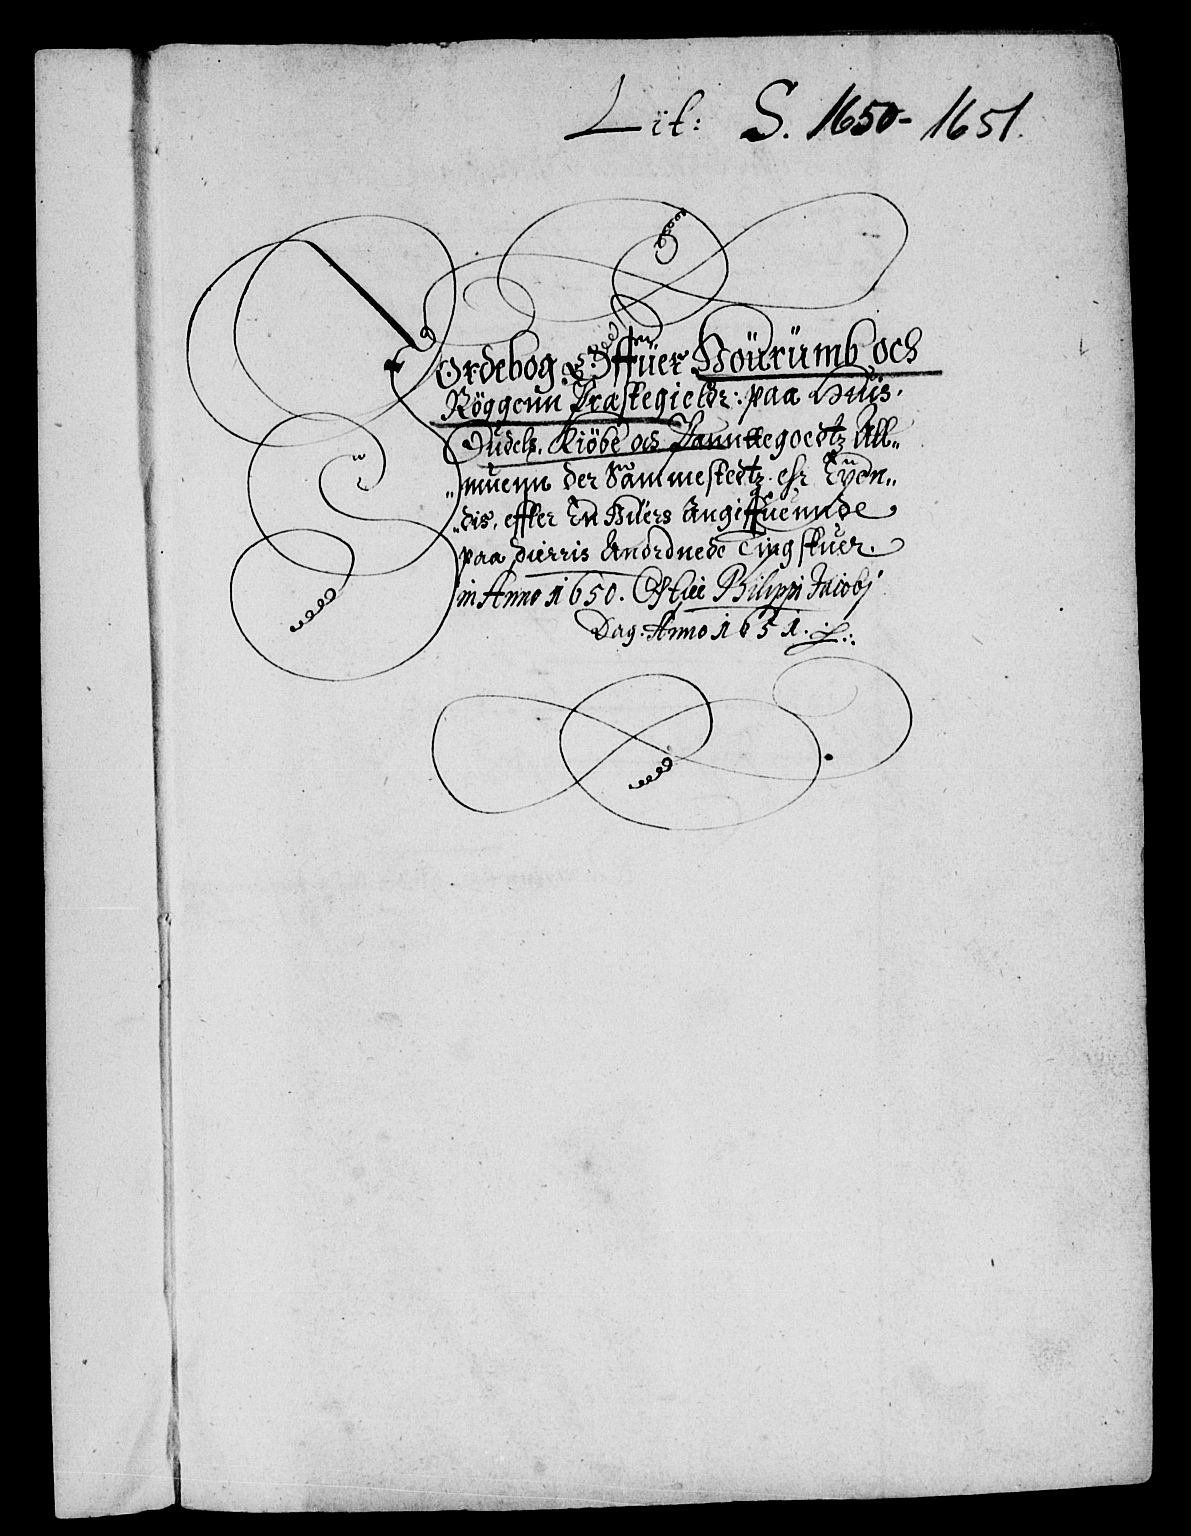 Lit: S. 1650-1651.
Jordebog Offuer Hoürümb och
Röggenn Præstegieldr: paa Huis.
Oudels, Kiöbe och Panttegoedtz All„
„muenn der Sammestedtz. ehr Eÿen„
„dis. effter En Huers Angiffuennde
paa dierris Anordnede Tingstuer.
in Anno 1650. Philippi Jacobj
Dag: Anno 1651.